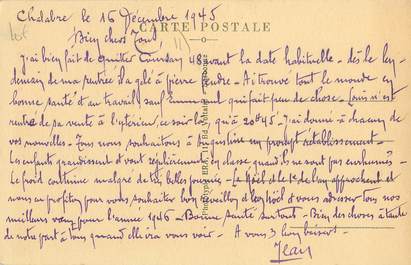 Chalabre le 16 Décembre 1945
CARTE POSTALE
Bien chers Tous
J'ai bien fait de quitter 48 avant la date habituelle - dès le len
demain de ma rentrée il a gelé à pierre fendre - Ai trouvé tout le monde en
bonne santé et au travail, sauf qui fait peu de chose - n'est
rentré de sa vente à l'extérieur, ce soir là qu'à 20h45 - J'ai donné à chacun de
vos nouvelles - Tous nous souhaitons à Augustine un prompt rétablissement -
Les enfants grandissent et vont régulièrement en classe quand ils ne sont pas enrhumés -
Le froid continue malgré de très belles journées - Le Noël et le 1er de l'an approchent et
nous en profitons pour vous souhaiter bon réveillon et Noël et vous adresser tous nos
meilleurs vœux pour l'année 1946 - Bonne santé surtout - Bien des choses à tante
de notre part à tous quand elle va vous voir - A vous 3 bons baisers -
Jean